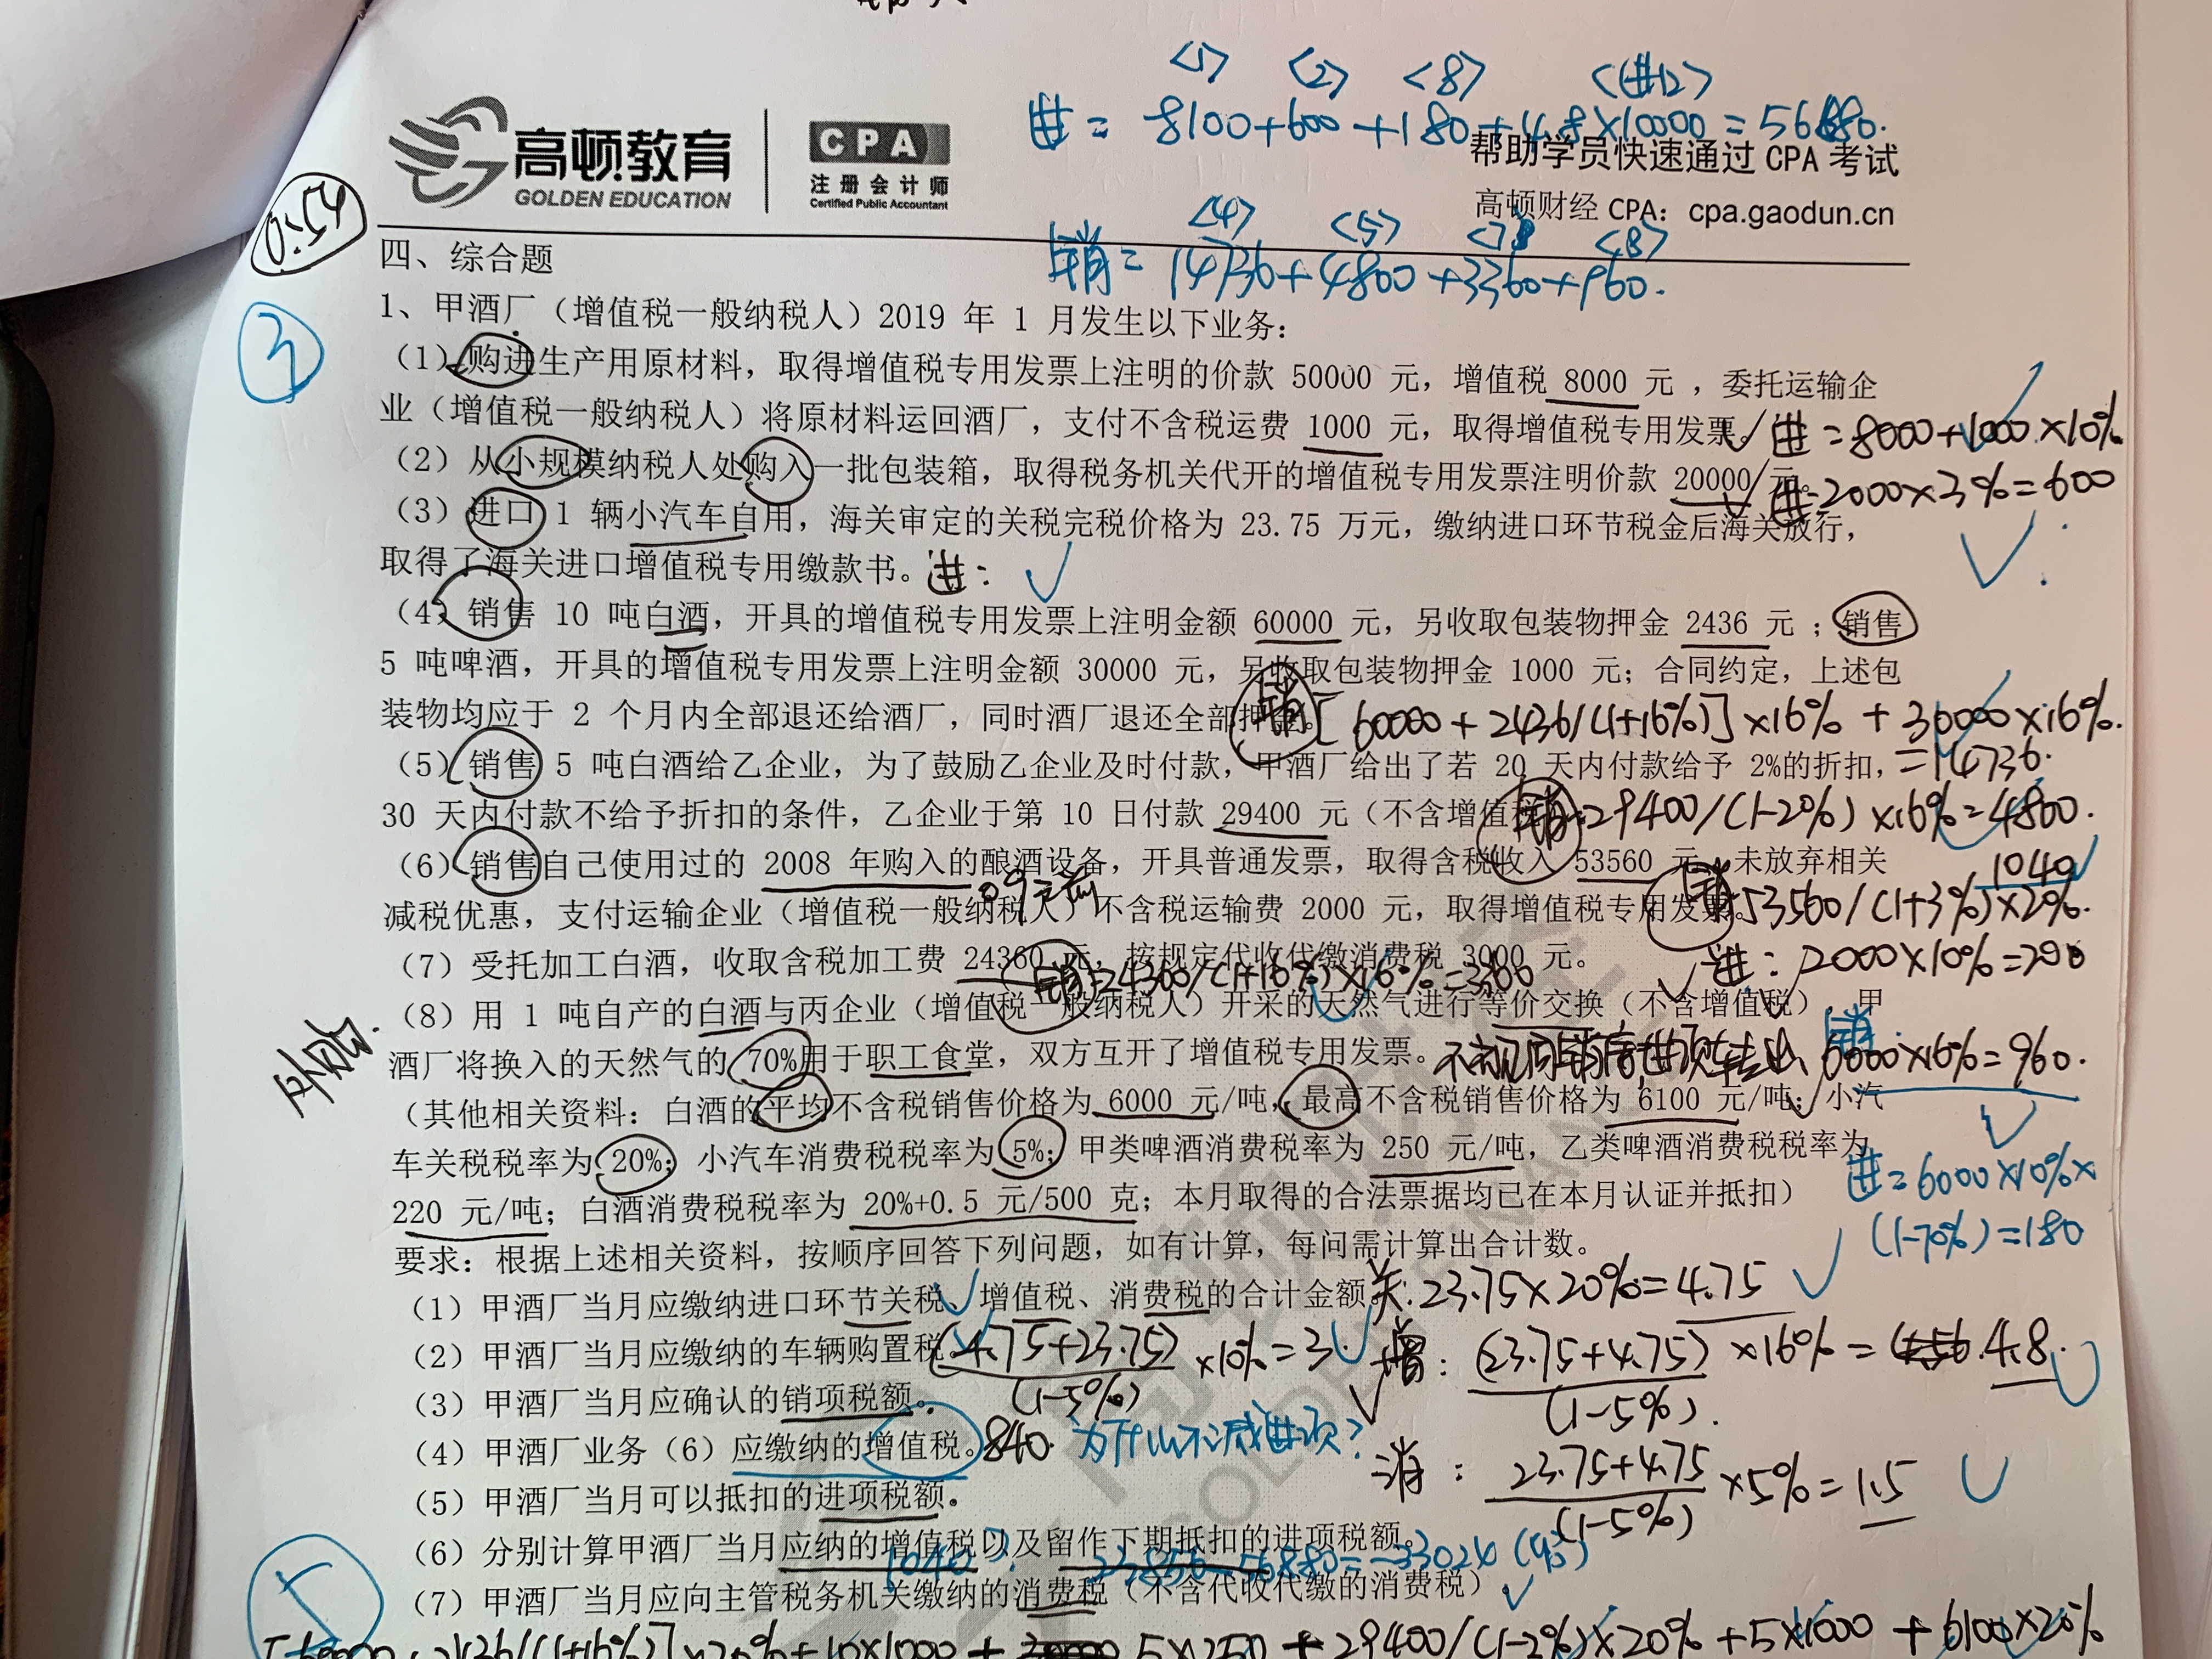 <1> <2> <8> <进12>
进 = 8100+600+180+4.8×10000=56880.
高顿教育
GOLDEN EDUCATION
CPA
注册会计师
Certified Public Accountant
帮助学员快速通过 CPA 考试
高顿财经 CPA: cpa.gaodun.cn
0.54
<4> <5> <7> <8>
销= 14736+4800+3360+960.
四、综合题
3
1、甲酒厂（增值税一般纳税人）2019 年 1 月发生以下业务：
（1）购进生产用原材料，取得增值税专用发票上注明的价款 50000 元，增值税 8000 元 ，委托运输企
业（增值税一般纳税人）将原材料运回酒厂，支付不含税运费 1000 元，取得增值税专用发票。
进=8000+1000×10%
（2）从小规模纳税人处购入一批包装箱，取得税务机关代开的增值税专用发票注明价款 20000 元。
进=2000×3%=600
（3）进口 1 辆小汽车自用，海关审定的关税完税价格为 23.75 万元，缴纳进口环节税金后海关放行，
取得了海关进口增值税专用缴款书。 进：
（4）销售 10 吨白酒，开具的增值税专用发票上注明金额 60000 元，另收取包装物押金 2436 元 ；销售
5 吨啤酒，开具的增值税专用发票上注明金额 30000 元，另收取包装物押金 1000 元；合同约定，上述包
装物均应于 2 个月内全部退还给酒厂，同时酒厂退还全部押金。
销[60000+2436/(1+16%)]×16% + 30000×16%.
=14736.
（5）销售 5 吨白酒给乙企业，为了鼓励乙企业及时付款，甲酒厂给出了若 20 天内付款给予 2%的折扣，
30 天内付款不给予折扣的条件，乙企业于第 10 日付款 29400 元（不含增值税）。
销:29400/(1-2%)×16%=4800.
（6）销售自己使用过的 2008 年购入的酿酒设备，开具普通发票，取得含税收入 53560 元，未放弃相关
1040
09之前
减税优惠，支付运输企业（增值税一般纳税人）不含税运输费 2000 元，取得增值税专用发票。
销:53560/(1+3%)×2%.
（7）受托加工白酒，收取含税加工费 24360 元，按规定代收代缴消费税 3000 元。
销=24360/(1+16%)×16%=3360
进：2000×10%=200
（8）用 1 吨自产的白酒与丙企业（增值税一般纳税人）开采的天然气进行等价交换（不含增值税），甲
酒厂将换入的天然气的 70%用于职工食堂，双方互开了增值税专用发票。
不视同销售,进项转出
销
6000×16%=960.
（其他相关资料：白酒的平均不含税销售价格为 6000 元/吨，最高不含税销售价格为 6100 元/吨；小汽
车关税税率为 20%；小汽车消费税税率为 5%；甲类啤酒消费税率为 250 元/吨，乙类啤酒消费税税率为
进=6000×10%×
220 元/吨；白酒消费税税率为 20%+0.5 元/500 克；本月取得的合法票据均已在本月认证并抵扣）
(1-70%)=180
要求：根据上述相关资料，按顺序回答下列问题，如有计算，每问需计算出合计数。
（1）甲酒厂当月应缴纳进口环节关税、增值税、消费税的合计金额。
关:23.75×20%=4.75
（2）甲酒厂当月应缴纳的车辆购置税。
(4.75+23.75)/(1-5%) ×10%=3
增: (23.75+4.75)/(1-5%) ×16% = 4.8.
（3）甲酒厂当月应确认的销项税额。
（4）甲酒厂业务（6）应缴纳的增值税。 840. 为什么不减进项?
消: 23.75+4.75/(1-5%) ×5%=1.5
（5）甲酒厂当月可以抵扣的进项税额。
（6）分别计算甲酒厂当月应纳的增值税以及留作下期抵扣的进项税额。
1040 ? 23856-56880=-33024
（7）甲酒厂当月应向主管税务机关缴纳的消费税（不含代收代缴的消费税）。
[60000+2436/(1+16%)]×20%+10×1000+ 5×250 + 29400/(1-2%)×20% +5×1000 + 6100×20%